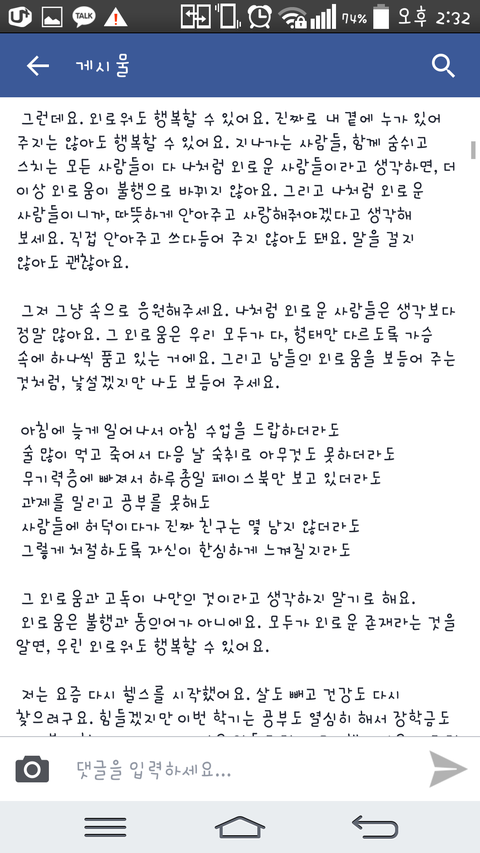 TALK
74%
오후 2:32
게시물
그런데요. 외로워도 행복할 수 있어요. 진짜로 내 곁에 누가 있어
주지는 않아도 행복할 수 있어요. 지나가는 사람들, 함께 숨쉬고
스치는 모든 사람들이 다 나처럼 외로운 사람들이라고 생각하면, 더
이상 외로움이 불행으로 바뀌지 않아요. 그리고 나처럼 외로운
사람들이니까, 따뜻하게 안아주고 사랑해줘야겠다고 생각해
보세요. 직접 안아주고 쓰다듬어 주지 않아도 돼요. 말을 걸지
않아도 괜찮아요.
그저 그냥 속으로 응원해주세요. 나처럼 외로운 사람들은 생각보다
정말 많아요. 그 외로움은 우리 모두가 다, 형태만 다르도록 가슴
속에 하나씩 품고 있는 거에요. 그리고 남들의 외로움을 보듬어 주는
것처럼, 낯설겠지만 나도 보듬어 주세요.
아침에 늦게 일어나서 아침 수업을 드랍하더라도
술 많이 먹고 죽어서 다음 날 숙취로 아무것도 못하더라도
무기력증에 빠져서 하루종일 페이스북만 보고 있더라도
과제를 밀리고 공부를 못해도
사람들에 허덕이다가 진짜 친구는 몇 남지 않더라도
그렇게 처절하도록 자신이 한심하게 느껴질지라도
그 외로움과 고독이 나만의 것이라고 생각하지 말기로 해요.
외로움은 불행과 동의어가 아니에요. 모두가 외로운 존재라는 것을
알면, 우린 외로워도 행복할 수 있어요.
저는 요즘 다시 헬스를 시작했어요. 살도 빼고 건강도 다시
찾으려구요. 힘들겠지만 이번 학기는 공부도 열심히 해서 장학금도
댓글을 입력하세요...